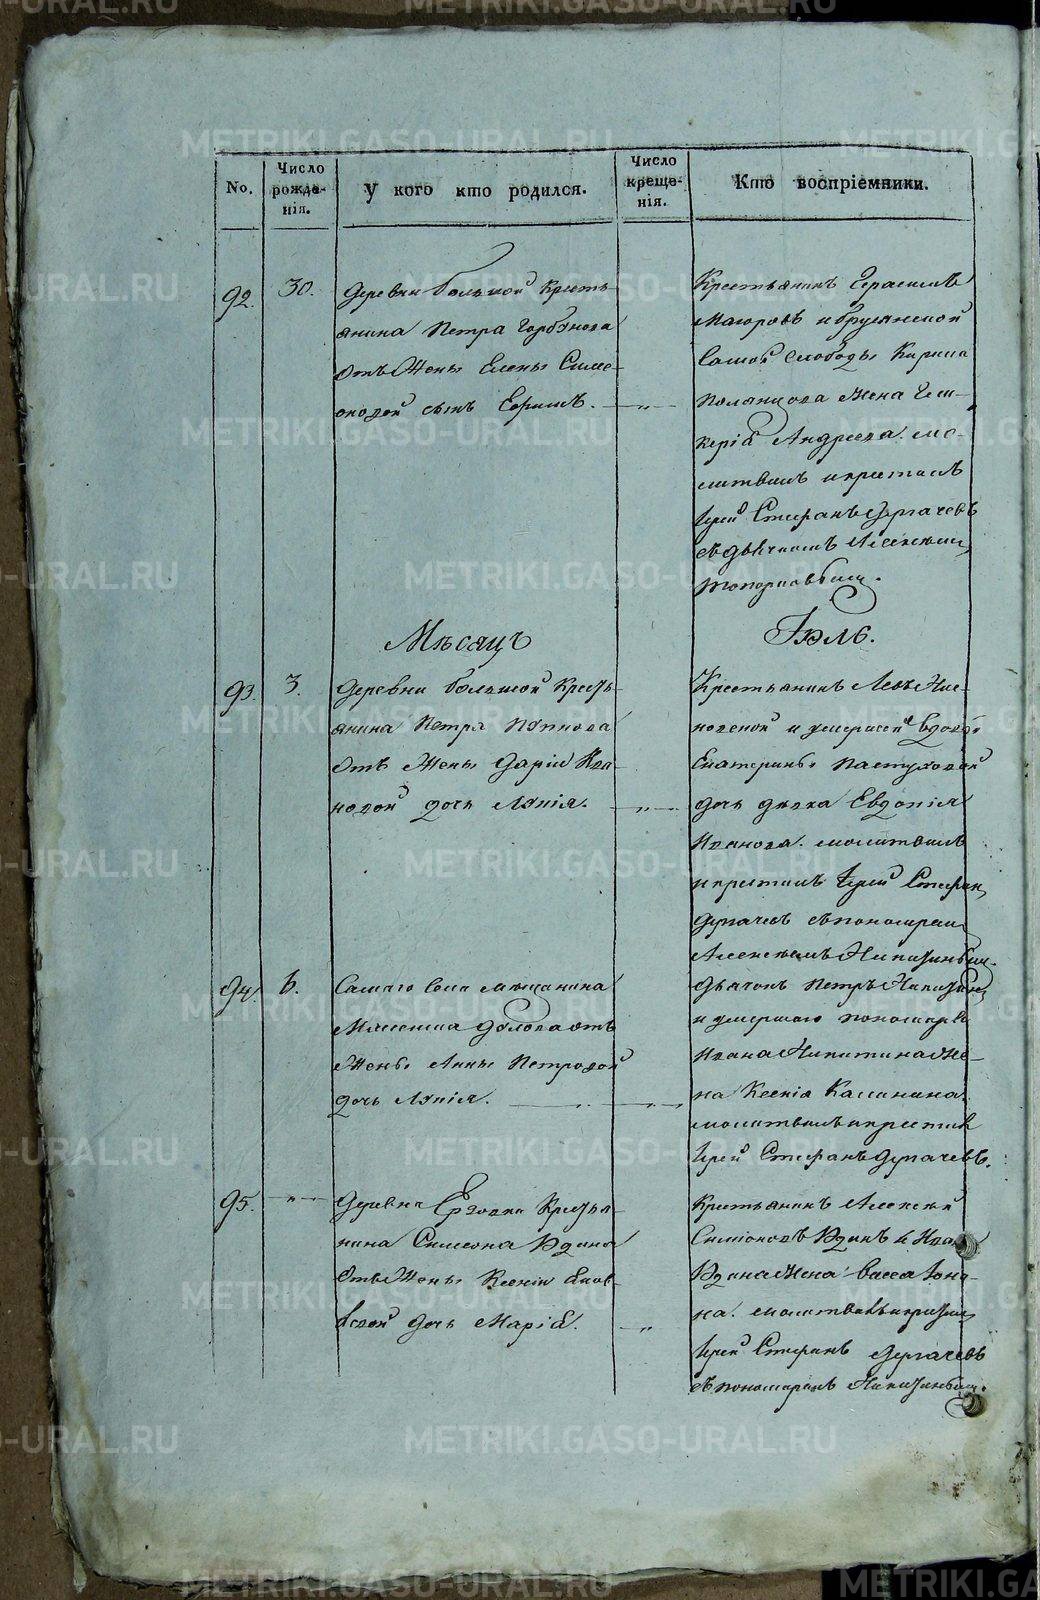 No.
Число рожде-
нія.
У кого кто родился.
Число креще-
нія.
Кто воспріемники.
92.
30.
Деревни большой Кресть-
янина Петра Горбунова
отъ жены Елены Симе-
оновой сынъ Ефимъ. — „ —
Крестьянинъ Герасимъ
и Брусянской
самой слободы Кирила
жена
Андреева. мо-
литвилъ и крестилъ
Іерей Стефанъ Дергачевъ
съ дьячкомъ Алексѣем
Топорковым.
Мѣсяцъ
Іюль.
93.
3.
Деревни большой Кресть-
янина Петра
отъ жены Даріи Ива-
новой дочь Лукія. — „ —
Крестьянинъ
и умершей вдовы
Екатерины Пастуховой
дочь дѣвка Евдокія
Иванова. молитвилъ
и крестилъ Іерей Стефан
Дергачевъ съ пономарем
Алексѣемъ Никитинымъ.
94.
6.
Самаго села мѣщанина
отъ
жены Анны Петровой
дочь Лукія. — „ —
Дьячокъ Петръ Никитин
и умершаго пономаря
Ивана Никитина же-
на Ксенія Калинина.
молитвилъ и крестил
Іерей Стефанъ Дергачевъ.
95.
— „ —
Деревни Ерзовки Крестья-
нина Симеона Юдина
отъ жены Ксеніи Яков-
левой дочь Марія. „
Крестьянинъ Алексей
Симіоновъ Юдинъ и Иван
Юдина жена Васса
на. молитвилъ и крестил
Іерей Стефанъ Дергачевъ
съ пономаремъ Никитинымъ.
METRIKI.GASO-URAL.RU